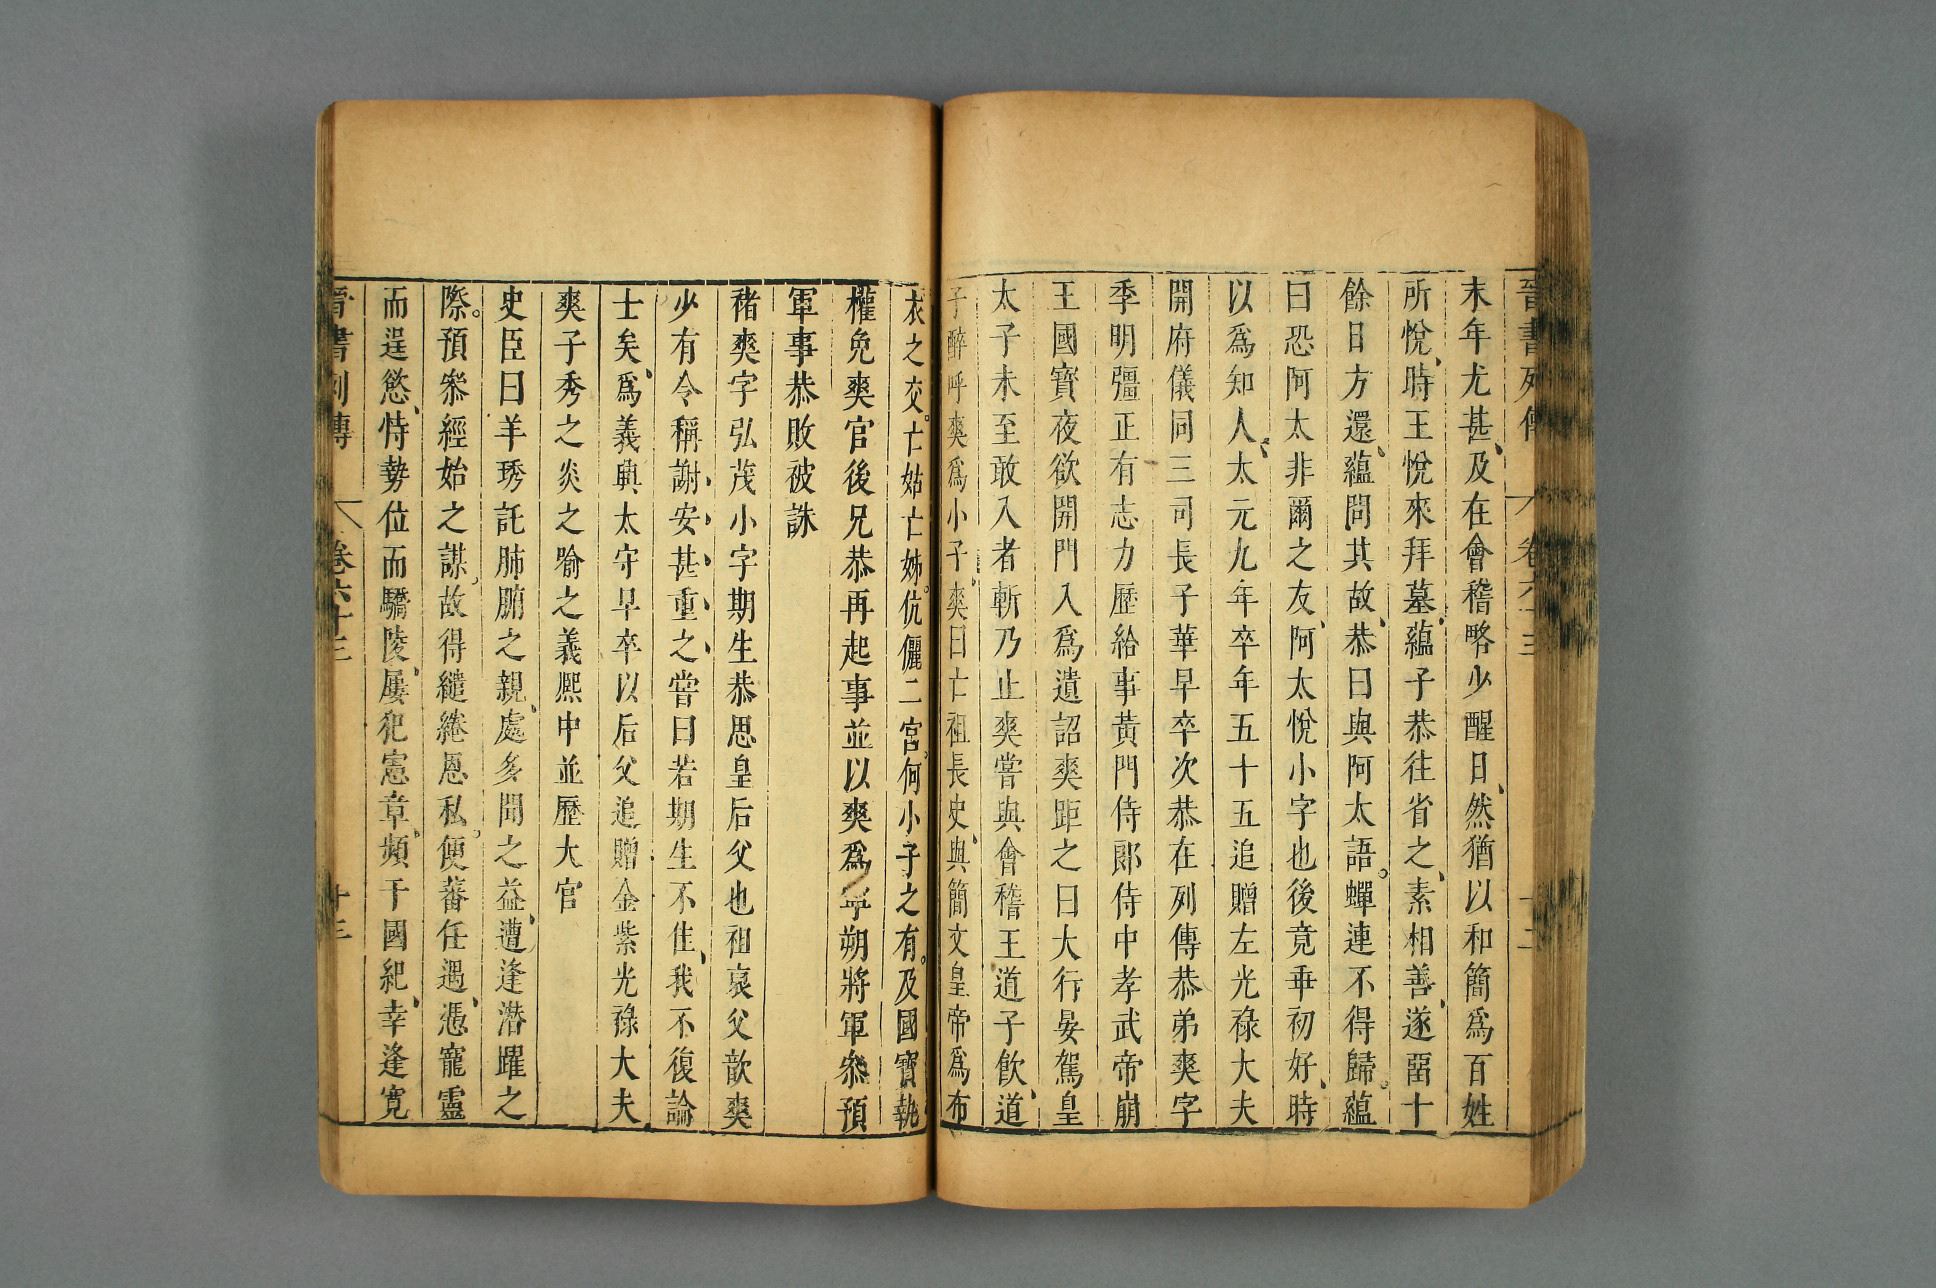 晉書列傳 卷六十三 十二
末年尤甚、及在會稽略少醒日、然猶以和簡爲百姓
所悅、時王悅來拜墓、蘊子恭往省之、素相善、遂畱十
餘日方還、蘊問其故、恭曰與阿太語。蟬連不得歸。蘊
曰恐阿太非爾之友、阿太悅小字也後竟乖初好、時
以爲知人、太元九年卒年五十五追贈左光祿大夫
開府儀同三司長子華早卒次恭在列傳恭弟爽字
季明彊正有志力歷給事黃門侍郎侍中孝武帝崩
王國寶夜欲開門入爲遺詔爽距之曰大行晏駕皇
太子未至敢入者斬乃止爽嘗與會稽王道子飲、道
子醉呼爽爲小子。爽曰亡祖長史、與簡文皇帝爲布
衣之交。亡姑亡姊。伉儷二宮。何小子之有。及國寶執
權免爽官後兄恭再起事並以爽爲寧朔將軍叅預
軍事恭敗被誅
褚爽字弘茂小字期生恭思皇后父也祖裒父歆爽
少有令稱謝安甚重之嘗曰若期生不佳、我不復論
士矣、爲義興太守早卒以后父追贈金紫光祿大夫
爽子秀之炎之喻之義熙中並歷大官
史臣曰羊琇託肺腑之親、處多聞之益、遭逢潛躍之
際。預叅經始之謀。故得繾綣恩私。便蕃任遇、憑寵靈
而逞慾、恃勢位而驕陵、屢犯憲章、頻干國紀、幸逢寬
晉書列傳 卷六十三 十三